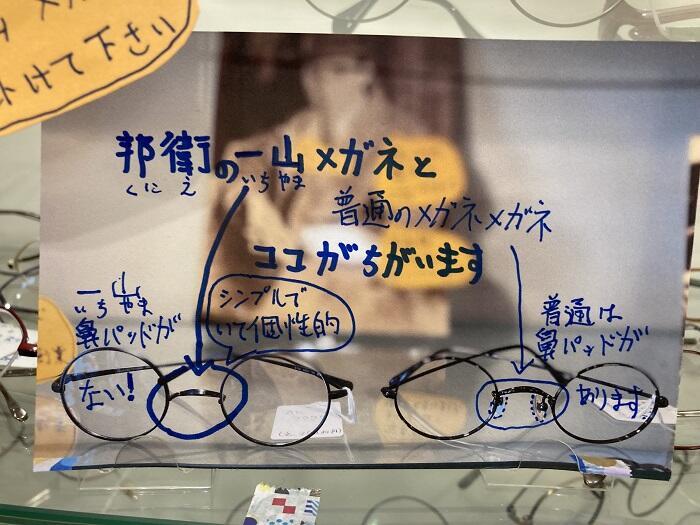 けて下さい
邦衛の一山メガネと
くにえ いちやま
普通のメガネメガネ
ココがちがいます
シンプルで
いて個性的
一山
いちやま
鼻パッドが
ない!
普通は
鼻パッドが
あります